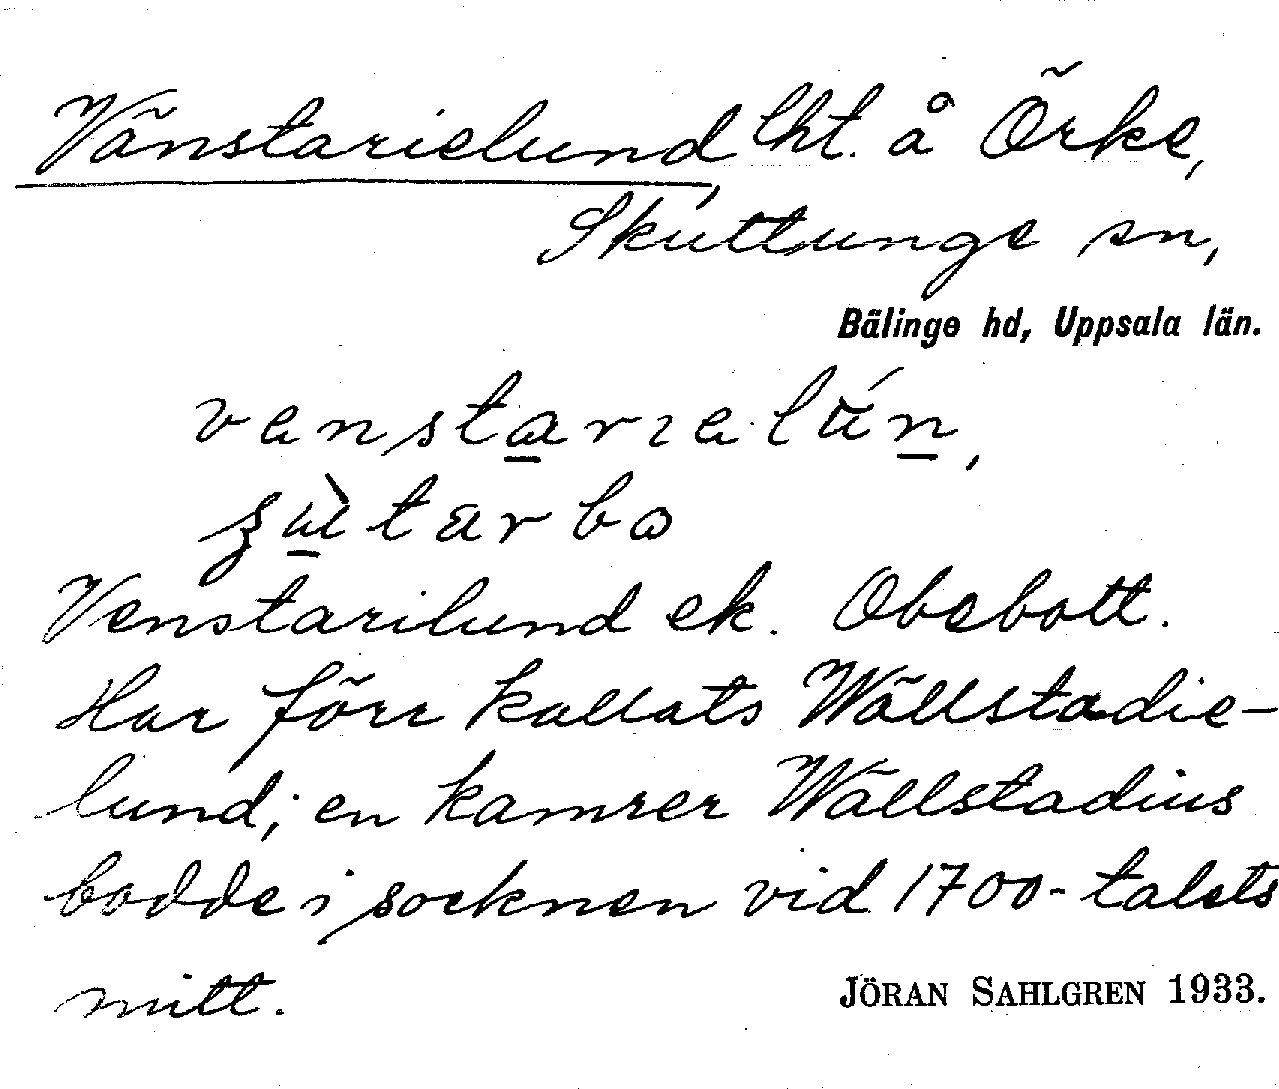 Vänstarielund, lht. å Örke,
Skuttunge sn,
Bälinge hd, Uppsala län.
vanstarıalún,
Venstarilund ek. Obebott.
Har förr kallats Wällstadie-
lund; en kamrer Wällstadius
bodde i socknen vid 1700-talets
mitt.
JÖRAN SAHLGREN 1933.